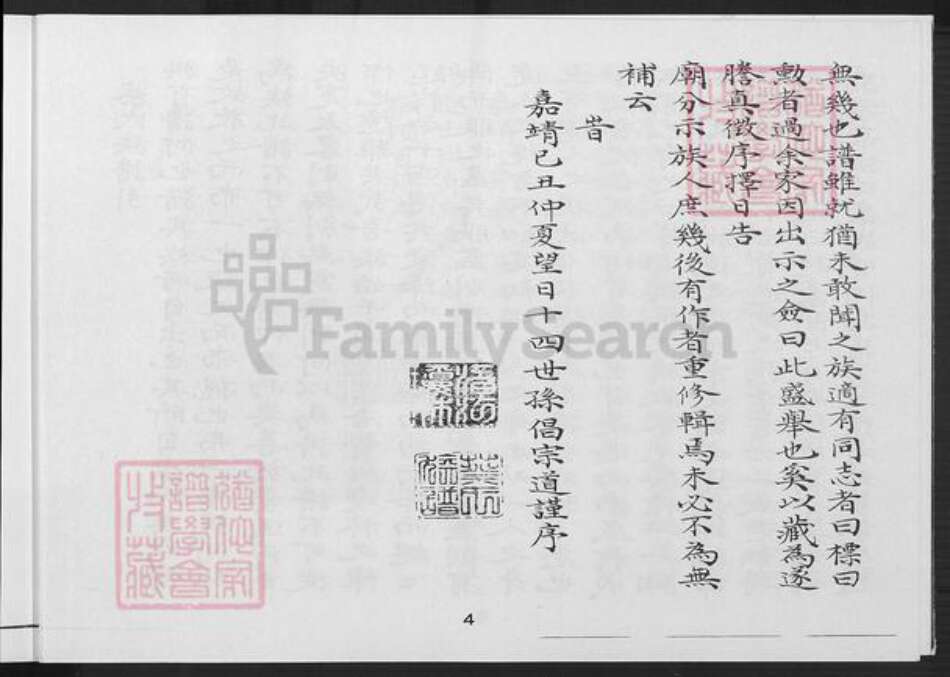 無幾也譜雖就猶未敢聞之族適有同志者曰標曰
勳者過余家因出示之僉曰此盛舉也奚以藏為遂
謄真徵序擇日告
廟分示族人庶幾後有作者重修輯焉未必不為無
補云
旹
嘉靖己丑仲夏望日十四世孫倡宗道謹序
FamilySearch
譜學會
收藏
4